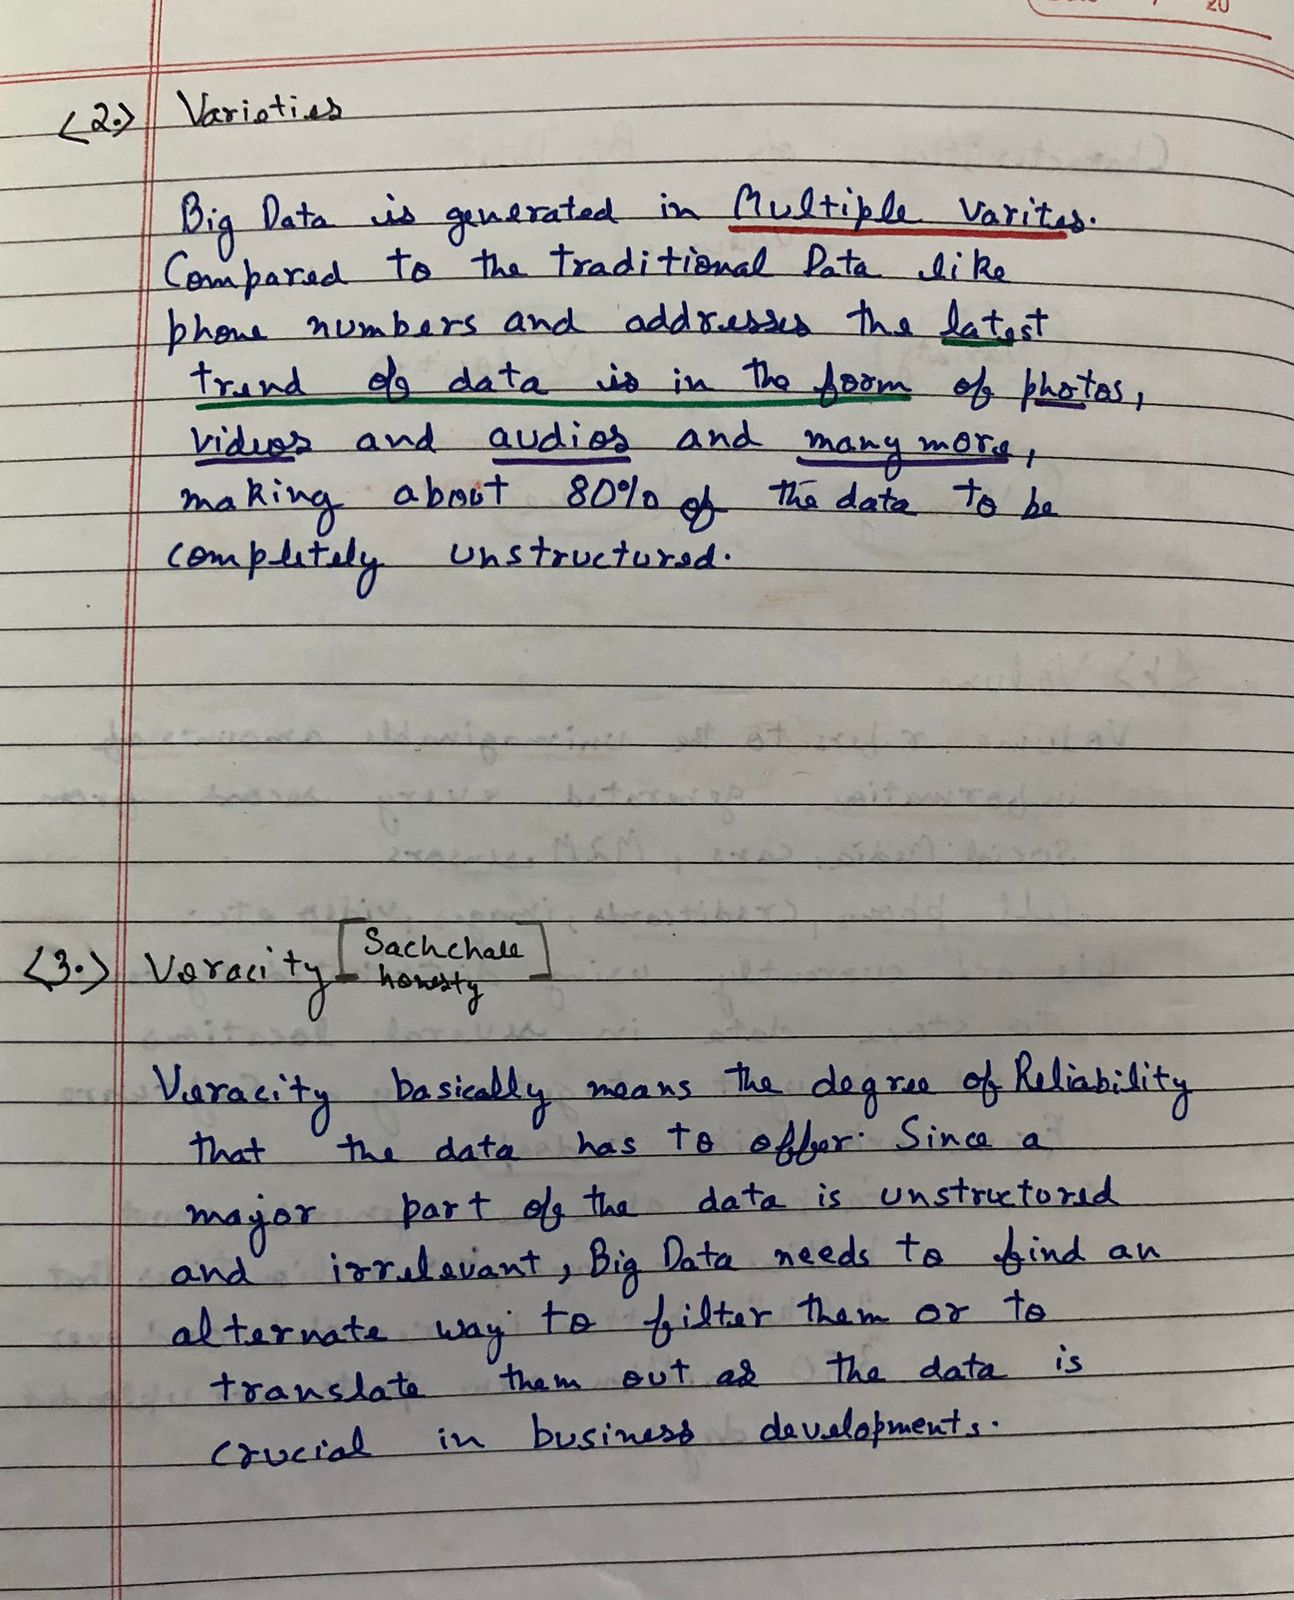 20
<2.> Varieties
Big Data is generated in Multiple Varites.
Compared to the traditional Data like
phone numbers and addresses the latest
trend of data is in the form of photos,
videos and audios and many more,
making about 80% of the data to be
completely unstructured.
<3.> Veracity [Sachchaee
honesty]
Veracity basically means the degree of Reliability
that the data has to offer. Since a
major part of the data is unstructured
and irrelevant, Big Data needs to find an
alternate way to filter them or to
translate them out as the data is
crucial in business developments.